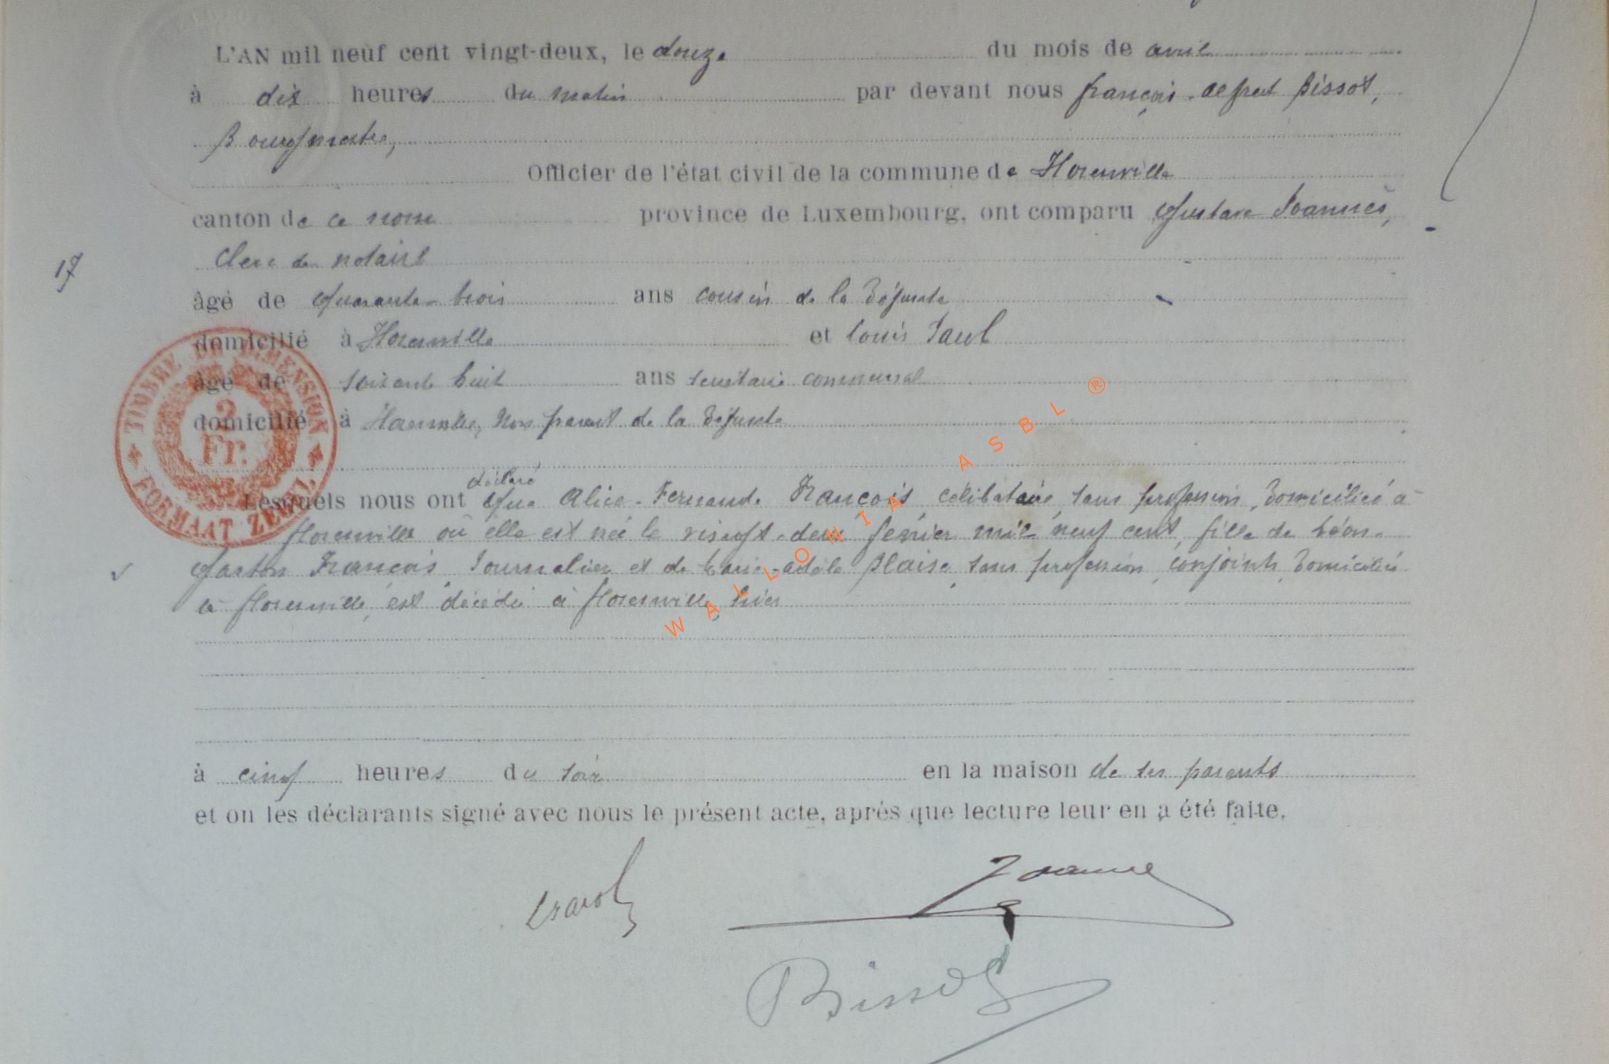 L'AN mil neuf cent vingt-deux, le douze du mois de avril
à dix heures du matin par devant nous françois-alfred Bissot,
Bourgmestre,
Officier de l'état civil de la commune de Florenville
canton de ce nom province de Luxembourg, ont comparu Gustave Joannès,
Clerc de notaire
17
âgé de quarante-trois ans cousin de la défunte
domicilié à Florenville et Louis
âgé de soixante huit ans secrétaire communal
domicilié à Florenville, non parent de la défunte
TIMBRE DE DIMENSION
2
Fr.
FORMAAT ZEGEL
déclaré
Lesquels nous ont que Alice-Fernande François, célibataire, sans profession, domiciliée à
florenville où elle est née le vingt-deux février mil neuf cent, fille de Léon-
Gaston François, Journalier et de Marie-adèle Plaise, sans profession, conjoints, domiciliés
à florenville, est décédée à florenville, hier
à cinq heures du soir en la maison de ses parents
et on les déclarants signé avec nous le présent acte, après que lecture leur en a été faite.
Joannes
Bissot
WALLONIA ASBL ®